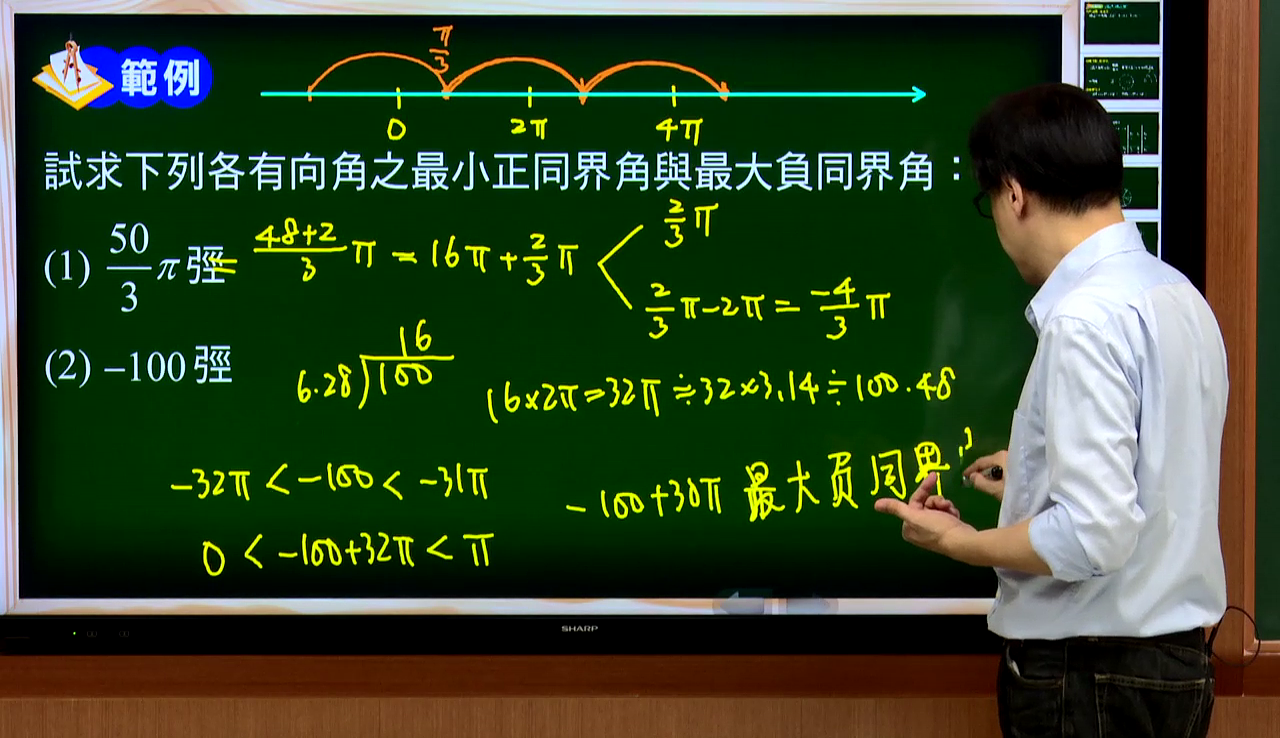 範例
π/3
0 2π 4π
試求下列各有向角之最小正同界角與最大負同界角：
(1) 50/3 π 弳 = 48+2/3 π = 16π + 2/3 π
2/3 π
2/3 π - 2π = -4/3 π
(2) –100 弳
16
6.28)100
16×2π=32π≑32×3.14≑100.48
-32π < -100 < -31π
-100+30π 最大負同界
0 < -100+32π < π
SHARP